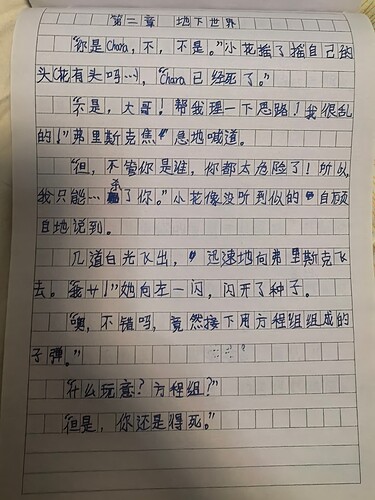 第二章 地下世界
“你是Chara,不,不是。”小花摇了摇自己的
头(花有头吗…),“Chara已经死了。”
“不是,大哥!帮我理一下思路!我很乱
的!”弗里斯克焦急地喊道。
“但,不管你是谁,你都太危险了!所以
我只能…杀了你。”小花像没听到似的自顾
自地说到。
几道白光飞出,迅速地向弗里斯克飞
去。“我艹!”她向左一闪,闪开了种子。
“噢,不错吗,竟然接下用方程组组成的
子弹。”
“什么玩意?方程组?”
“但是,你还是得死。”